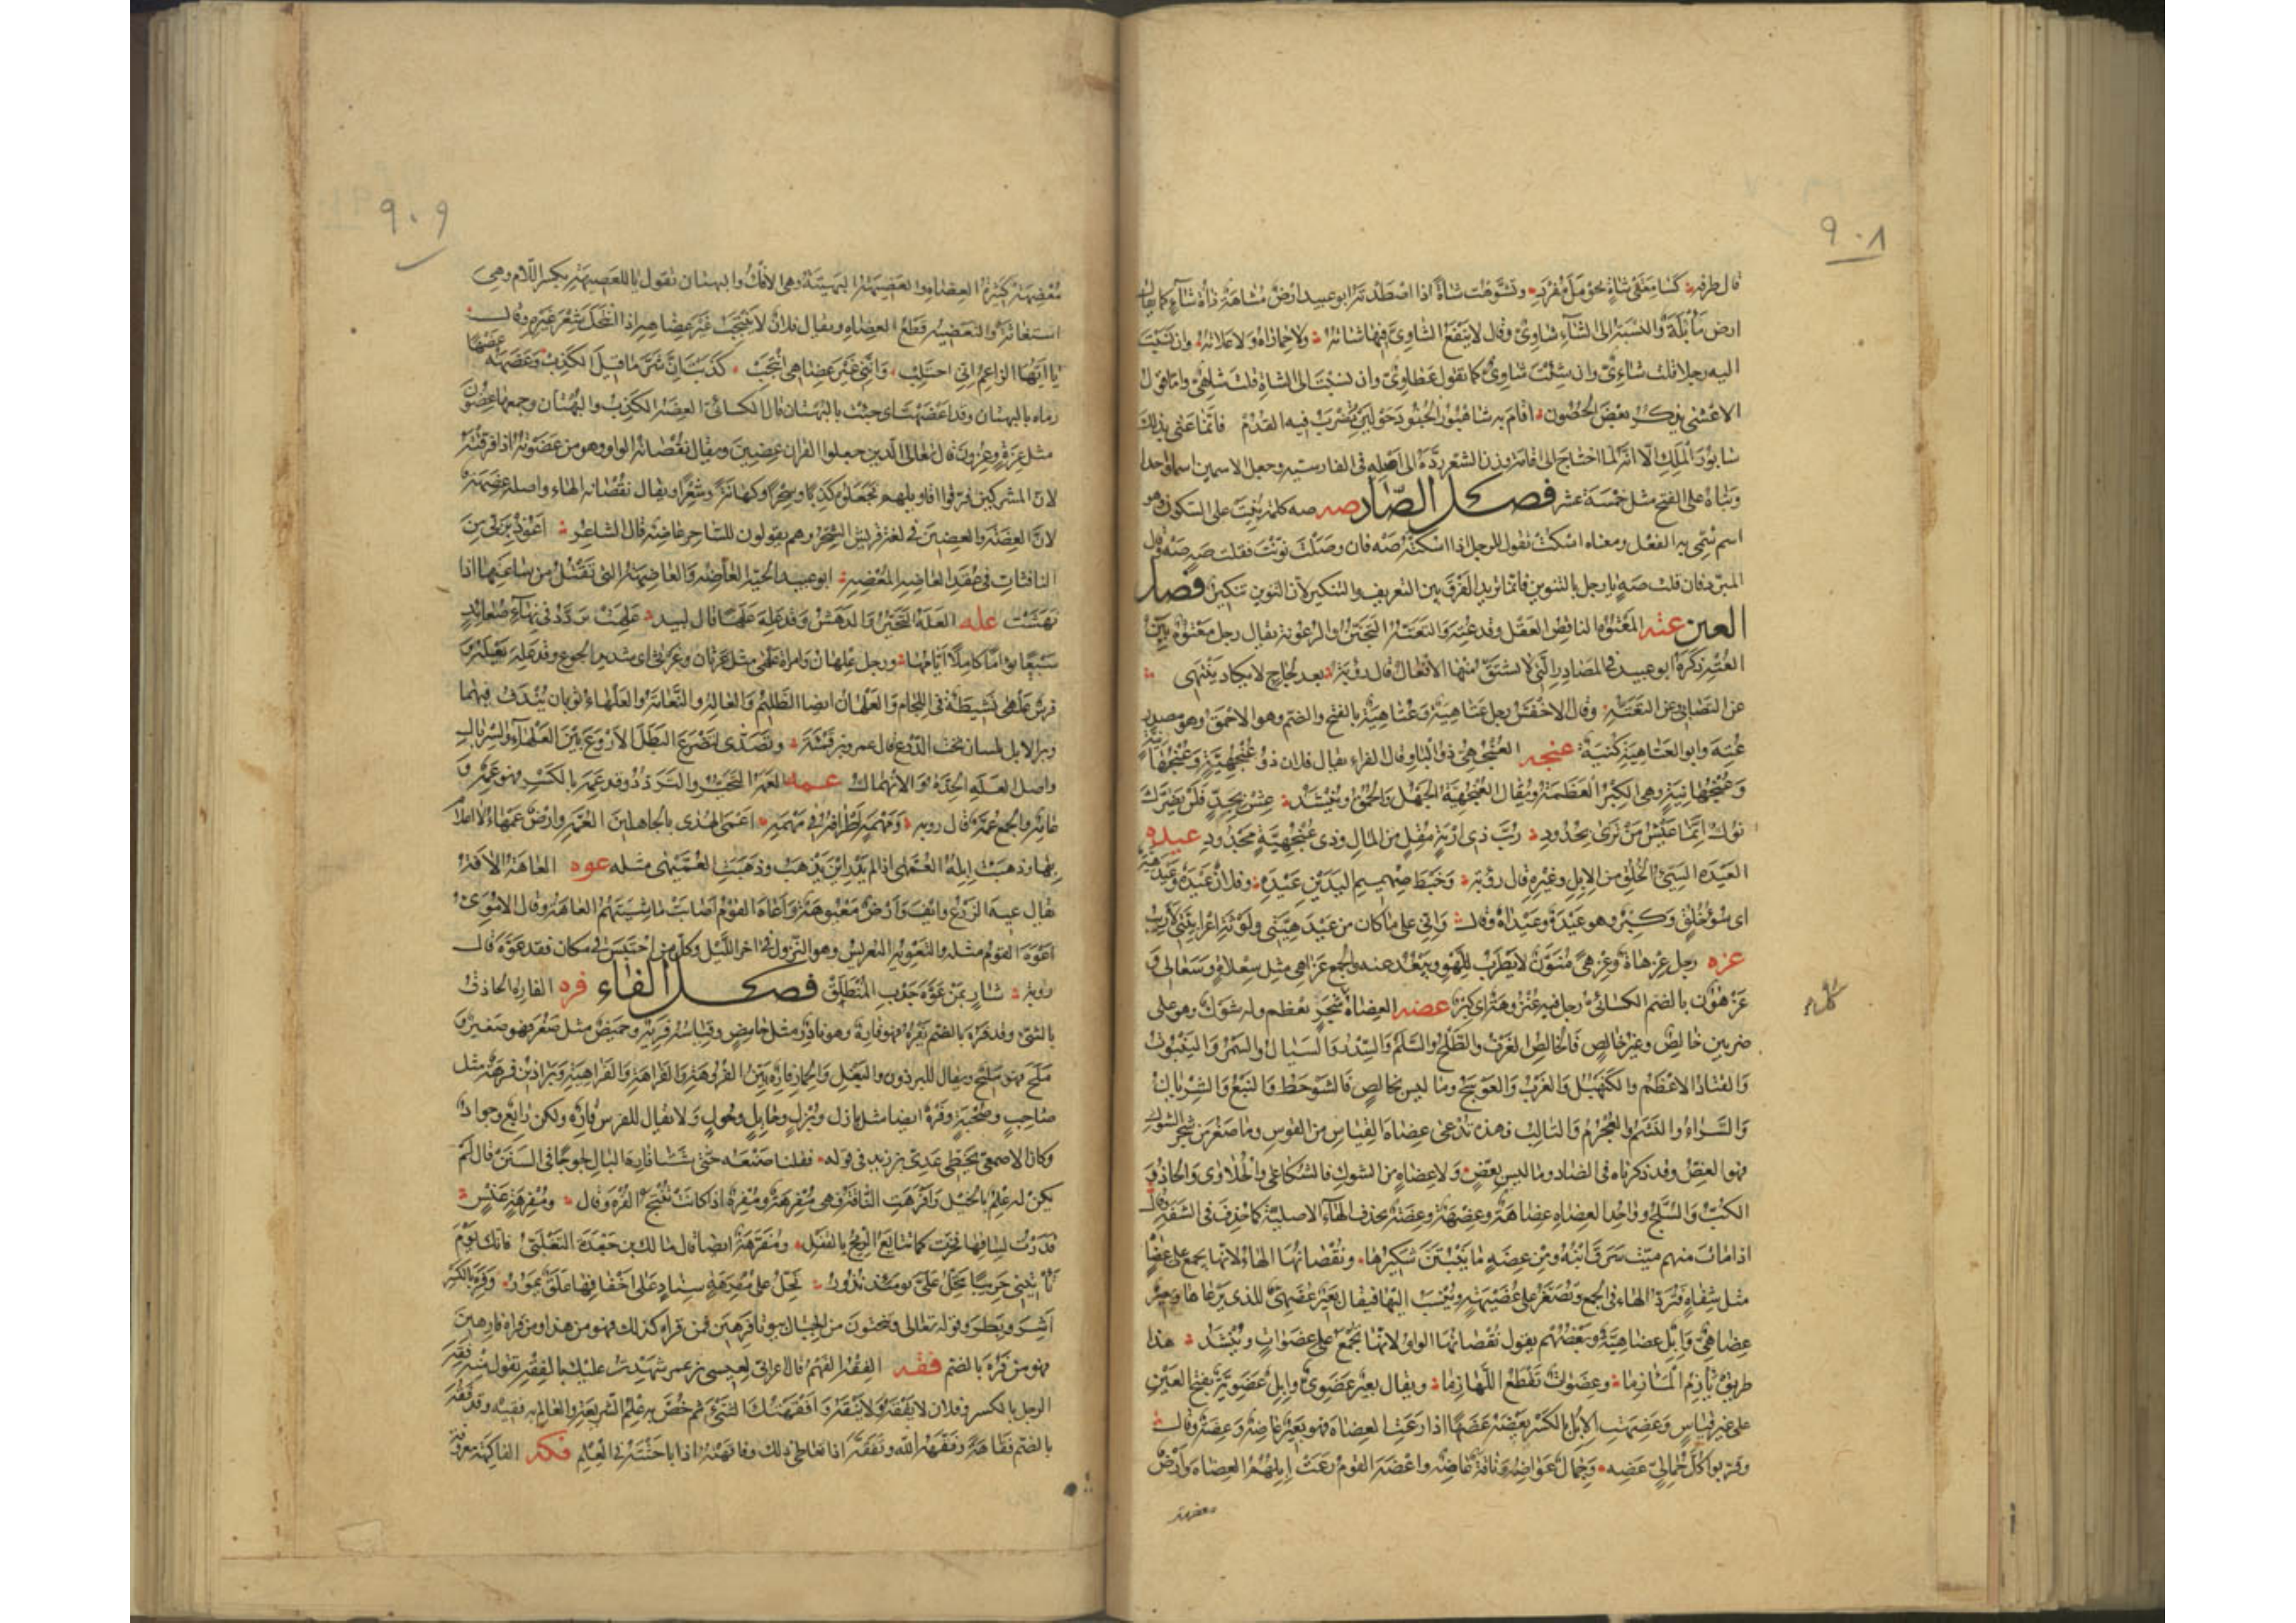 ٩٠٨
قال طرفة كسامعتي شاة بحومل مفرد وتشوهت شاة اذا اصطدته ابو عبيد ارض مشاهة ذاة شاء كما يقال
ارض مأبلة والنسبة الى الشاء شاوي وقال لا ينفع الشاوي فيها شاته ولا حماراه ولا علاته وان نسبت
اليه رجلا قلت شائي وان شئت شاوي كما تقول عطاوي وان نسبت الى الشاة قلت شاهي واما قول
الاعشى يذكر بعض الحصون اقام به شاهبور الجنود حولين تضرب فيه القدم فانما عنى بذلك
شابور الملك الا انه لما احتاج الى اقامة وزن الشعر رده الى اصله في الفارسية وجعل الاسمين اسما واحدا
وبناه على الفتح مثل خمسة عشر فصل الصاد صه صه كلمة بنيت على السكون وهو
اسم سمي به الفعل ومعناه اسكت تقول للرجل اذا اسكتته صه فان وصلت نونت فقلت صه صه وقال
المبرد فان قلت صه يا رجل بالتنوين فانما تريد الفرق بين التعريف والتنكير لان التنوين تنكير فصل
العين عته المعتوه الناقص العقل وقد عته والتعته التجنن والرعونة يقال رجل معتوه بين
العته ذكره ابو عبيد في المصادر التي لا تشتق منها الافعال قال رؤبة بعد لجاج لا يكاد ينتهي
عن التصابي وعن التعته وقال الاخفش رجل عتاهية وعتاهية بالفتح والضم وهو الاحمق وهو مصدر
عته وابو العتاهية كنية عنجه العنجهي ذو الباو قال الفراء يقال فلان ذو عنجهية وعنجهانية
وعنجهانية وهي الكبر والعظمة ويقال العنجهية الجهل والحمق وينشد عش بجد فلن يضرك
نوك انما عيش من ترى بجدود رب ذي اربة مقل من المال وذي عنجهية مجدود عيده
العيده السيئ الخلق من الابل وغيره قال رؤبة وخبط صهميم اليدين عيده وفلان عيده وعيدهية
اي سوء خلق وكبر وهو عيدهة وعيداه وقال واني على ما كان من عيدهيتي ولوثة اعرابيتي لاريب
عزه رجل عزهاة وعزهى منون لا يطرب للهو ويبعد عنه والجمع عزاهي مثل سعلاة وسعالي و
عزهون بالضم الكسائي رجل فيه عنزهوة اي كبر عضه العضاه كل شجر يعظم وله شوك وهو على
ضربين خالص وغير خالص فالخالص الغرف والطلح والسلم والسدر والسيال والسمر والينبوت
والقتاد الاعظم والكنهبل والغرب والعوسج وما ليس بخالص فالشوحط والنبع والشريان
والسراء والنشم والعجرم والتالب فهذه تدعى عضاه القياس من القوس وما صغر من شجر الشوك
فهو العض وقد ذكرناه في الضاد وما ليس بعض ولا عضاه من الشوك فالشكاعى والحلاوى والحاذ و
الكب والسلج وواحد العضاه عضاهة وعضهة وعضة بحذف الهاء الاصلية كما حذف في الشفة وقال
اذا مات منهم ميت سرق ابنه ومن عضة ما ينبتن شكيرها ونقصانها الهاء لانها تجمع على عضاه
مثل شفاه فترد الهاء في الجمع وتصغر على عضيهة وينسب اليها فيقال بعير عضهي للذي يرعاها وبعير
عضاهي وابل عضاهية وبعضهم يقول نقصانها الواو لانها تجمع على عضوات وينشد هذا
طريق يأزم المآزما وعضوات تقطع اللهازما ويقال بعير عضوي وابل عضوية بفتح العين
على غير قياس وعضهت الابل بالكسر تعضه عضها اذا رعت العضاه فهو بعير عاضه وعضه وقال
وقربوا كل جمالي عضه وجمال عواضه وناقة عاضه واعضه القوم رعت ابلهم العضاه وارض
معضهة
٩٠٩
معضهة كثيرة العضاه والعضيهة البهيتة وهي الافك والبهتان تقول يا للعضيهة بكسر اللام وهي
استغاثة والتعضيه قطع العضاه ويقال فلان لا ينتجب غير عضاهه اذا انتحل شعر غيره وقال
يا ايها الزاعم اني اجتلب وانني غير عضاهي انتجب كذبت ان شر ما قيل الكذب وعضهه عضها
رماه بالبهتان وقد اعضهت اي جئت بالبهتان قال الكسائي العضه الكذب والبهتان وجمعها عضون
مثل عزة وعزون قال تعالى الذين جعلوا القران عضين ويقال نقصانه الواو وهو من عضوته اذا فرقته
لان المشركين فرقوا اقاويلهم فجعلوه كذبا وسحرا وكهانة وشعرا ويقال نقصانه الهاء واصله عضهة
لان العضة والعضين في لغة قريش السحر وهم يقولون للساحر عاضه قال الشاعر اعوذ بربي من
النافثات في عقد العاضه المعضه ابو عبيد الحية العاضه والعاضهة التي تقتل من ساعتها اذا
نهشت عله العله التحير والدهش وقد عله علها قال لبيد علهت تردد في نهاء صعائد
سبعا تؤاما كاملا ايامها ورجل علهان وامراة علهى مثل غرثان وغرثى اي شديد الجوع وقد عله يعله و
فرس علهى نشيطة في اللجام والعلهان ايضا الظليم والعاله النعامة والعلهاء ثوبان يندف فيهما
وبر الابل يلبسان تحت الدرع قال عمرو بن قميئة وتصدى لتصرع البطل الاروع بين العلهاء والسربال
واصل العله الحدة والانهماك عمه العمه التحير والتردد وقد عمه بالكسر فهو عمه و
عامه والجمع عمه قال رؤبة ومهمه اطرافه في مهمه اعمى الهدى بالجاهلين العمه وارض عمهاء لا اعلام
بها وذهبت ابله العمهى اذا لم يدر اين يذهب وذهبت العميهى مثله عوه العاهة الافة
يقال عيه الزرع وايف وارض معيوهة واعاه القوم اصابت ماشيتهم العاهة وقال الاموي
اعوه القوم مثله والتعويه التعريس وهو النزول في اخر الليل وكل من احتبس في مكان فقد عوه قال
رؤبة شاز بمن عوه جدب المنطلق فصل الفاء فره الفاره الحاذق
بالشيء وقد فره بالضم يفره فهو فاره وهو نادر مثل حامض وقياسه فريه وحميض مثل صغر فهو صغير و
ملح فهو مليح ويقال للبرذون والبغل والحمار فاره بين الفروهة والفراهة والفراهية وبراذين فرهة مثل
صاحب وصحبة وفره ايضا مثل بازل وبزل وحايل وحول ولا يقال للفرس فاره ولكن رايع وجواد
وكان الاصمعي يخطئ عدي بن زيد في قوله فنقلنا صنعه حتى شتا فاره البال لجوجا في السنن قال لم
يكن له علم بالخيل وافرهت الناقة فهي مفره ومفرهة اذا كانت تنتج الفره وقال ومفرهة عنس
قدرت لساقها فخرت كما تتايع الريح بالقفل ومفرهة ايضا قال مالك بن جعدة التغلبي فانك يوم
تأتيني حريبا تحل علي يومئذ نذور تحل على مفرهة سناد على اخفافها علق يمور وفره بالكسر
اشر وبطر وقوله تعالى وتنحتون من الجبال بيوتا فرهين فمن قراه كذلك فهو من هذا ومن قراه فارهين
فهو من فره بالضم فقه الفقه الفهم قال اعرابي لعيسى بن عمر شهدت عليك بالفقه تقول منه فقه
الرجل بالكسر وفلان لا يفقه ولا ينقه وافقهتك الشيء ثم خص به علم الشريعة والعالم به فقيه وقد فقه
بالضم فقاهة وفقهه الله وتفقه اذا تعاطى ذلك وفاقهته اذا باحثته في العلم فكه الفاكهة معروفة